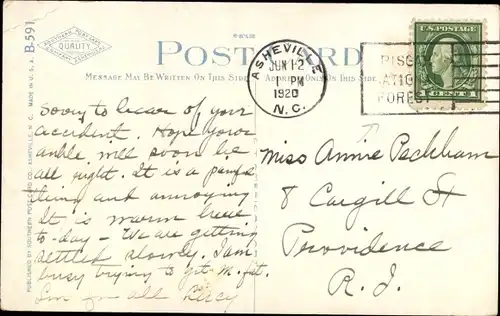 B-591
MADE IN U.S.A.
QUALITY
POST CARD
MESSAGE MAY BE WRITTEN ON THIS SIDE
ADDRESS ONLY ON THIS SIDE
ASHEVILLE
JUN 12
PM
1920
N.C.
PISG
ATIO
FOREST
U.S. POSTAGE
CENT
PUBLISHED BY SOUTHERN POST CARD CO., ASHEVILLE, N. C.
Sorry to hear of your
accident. Hope your
ankle will soon be
all right. It is a painful
thing and annoying
It is warm here
to-day - We are getting
settled slowly. I am
busy trying to get M. fat.
Luv for all Percy
Miss Annie Peckham
8 Cargill St
Providence
R. I.